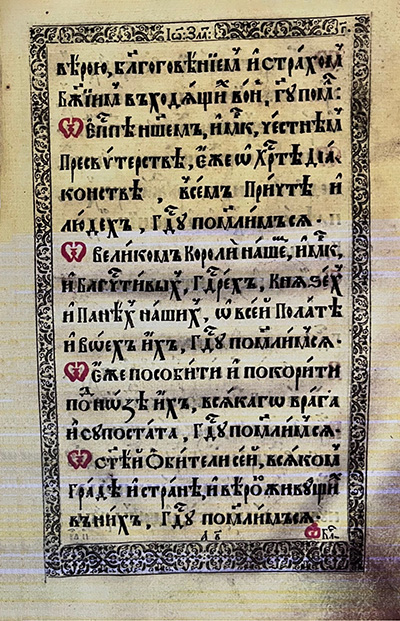 Іѡ҃. Зла҇.
вѣрою, бл҃гоговѣнїем̾ и҆ страхом̾
Бж҃їим̾ въходѧщи в̾он̾, гд҇у пом҇л:
Ѡ еп҇пѣ н҃шем̾, и҆м҇к, честнѣм̾
Пресвѵтерствѣ, е҆же ѡ҆ Хр҇тѣ дїа
конствѣ, всем̾ Причтѣ и҆
людехъ, Гд҇у помл҃имъсѧ.
Ѡ великом̾ Короли на́ше, и҆м҇к,
и҆ Бл҃гч҇тивых̾, Гд҇рех̾, Кнѧзех̾
и҆ Панѣх̾ на́ших̾, ѡ҆ всей Полатѣ
и҆ воех̾ и҆х̾, Гд҇у помл҃имъсѧ.
Ѡ е҆же пособити и҆ покорити
под̾ нѡзѣ и҆х̾, всѧкагѡ врага
и҆ супостата, Гд҇у помл҃имъсѧ.
Ѡ ст҃ѣй Ѻбители сей, всѧком̾
градѣ и҆ странѣ, и҆ вѣрою живущи
в̾ них̾, Гд҇у помл҃имъсѧ.
Ѡ Бл҃